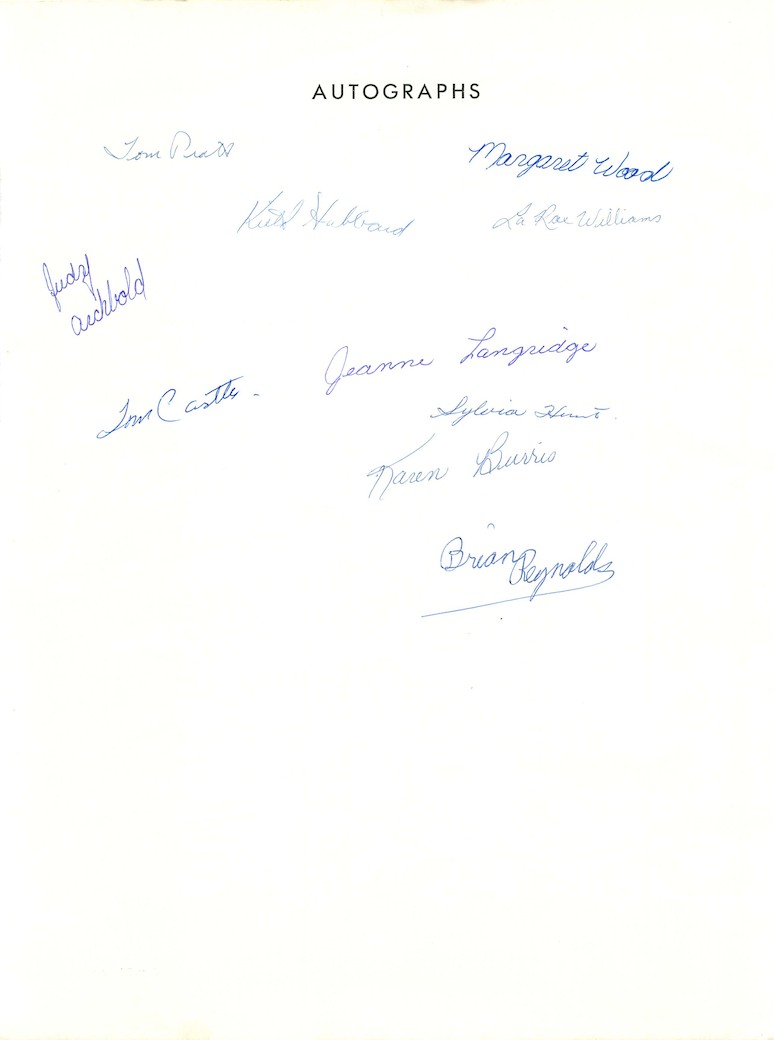 AUTOGRAPHS
Tom Pratt
Margaret Wood
Hubbard
La Rae Williams
Judy
Archbold
Jeanne Langridge
Tom Castle.
Sylvia Hunt.
Karen Burris
Brian Reynolds